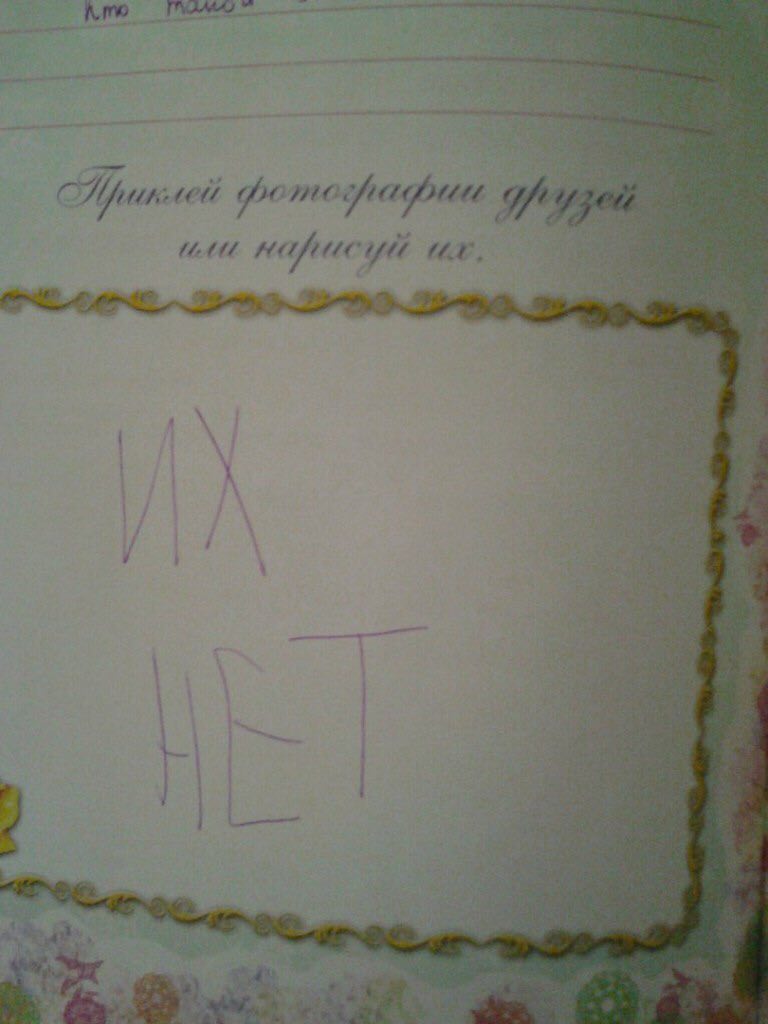 Кто такой
Приклей фотографии друзей
или нарисуй их.
ИХ
НЕТ